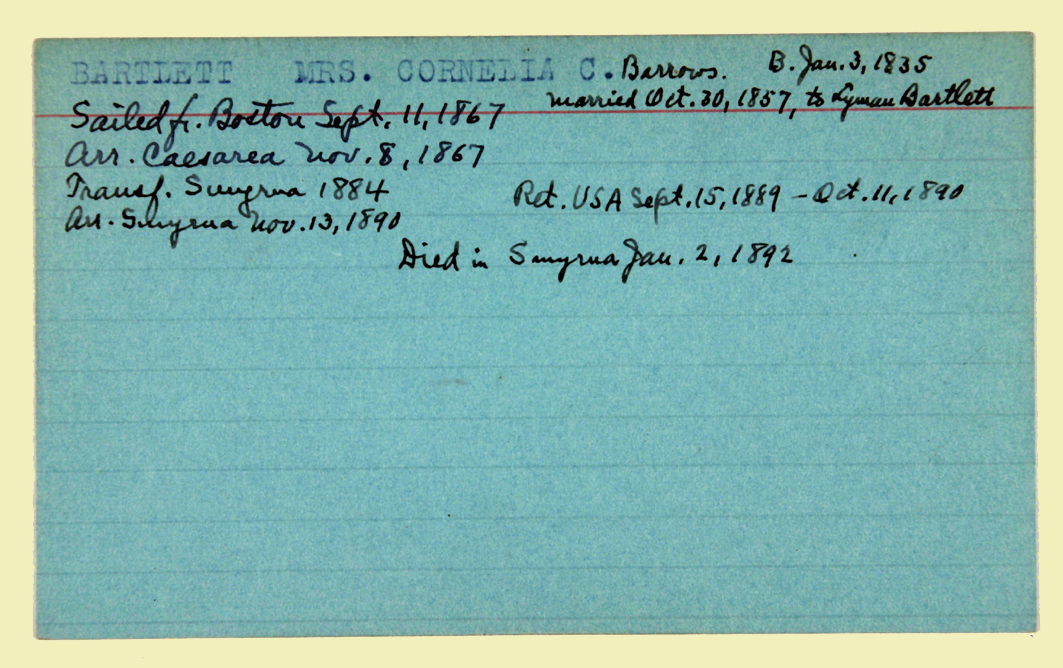 BARTLETT MRS. CORNELIA C. Barrows. B. Jan. 3, 1835
married Oct. 30, 1857, to Lyman Bartlett
Sailed fr. Boston Sept. 11, 1867
Arr. Caesarea Nov. 8, 1867
Transf. Smyrna 1884 Ret. USA Sept. 15, 1889 - Oct. 11, 1890
Arr. Smyrna Nov. 13, 1890
Died in Smyrna Jan. 2, 1892